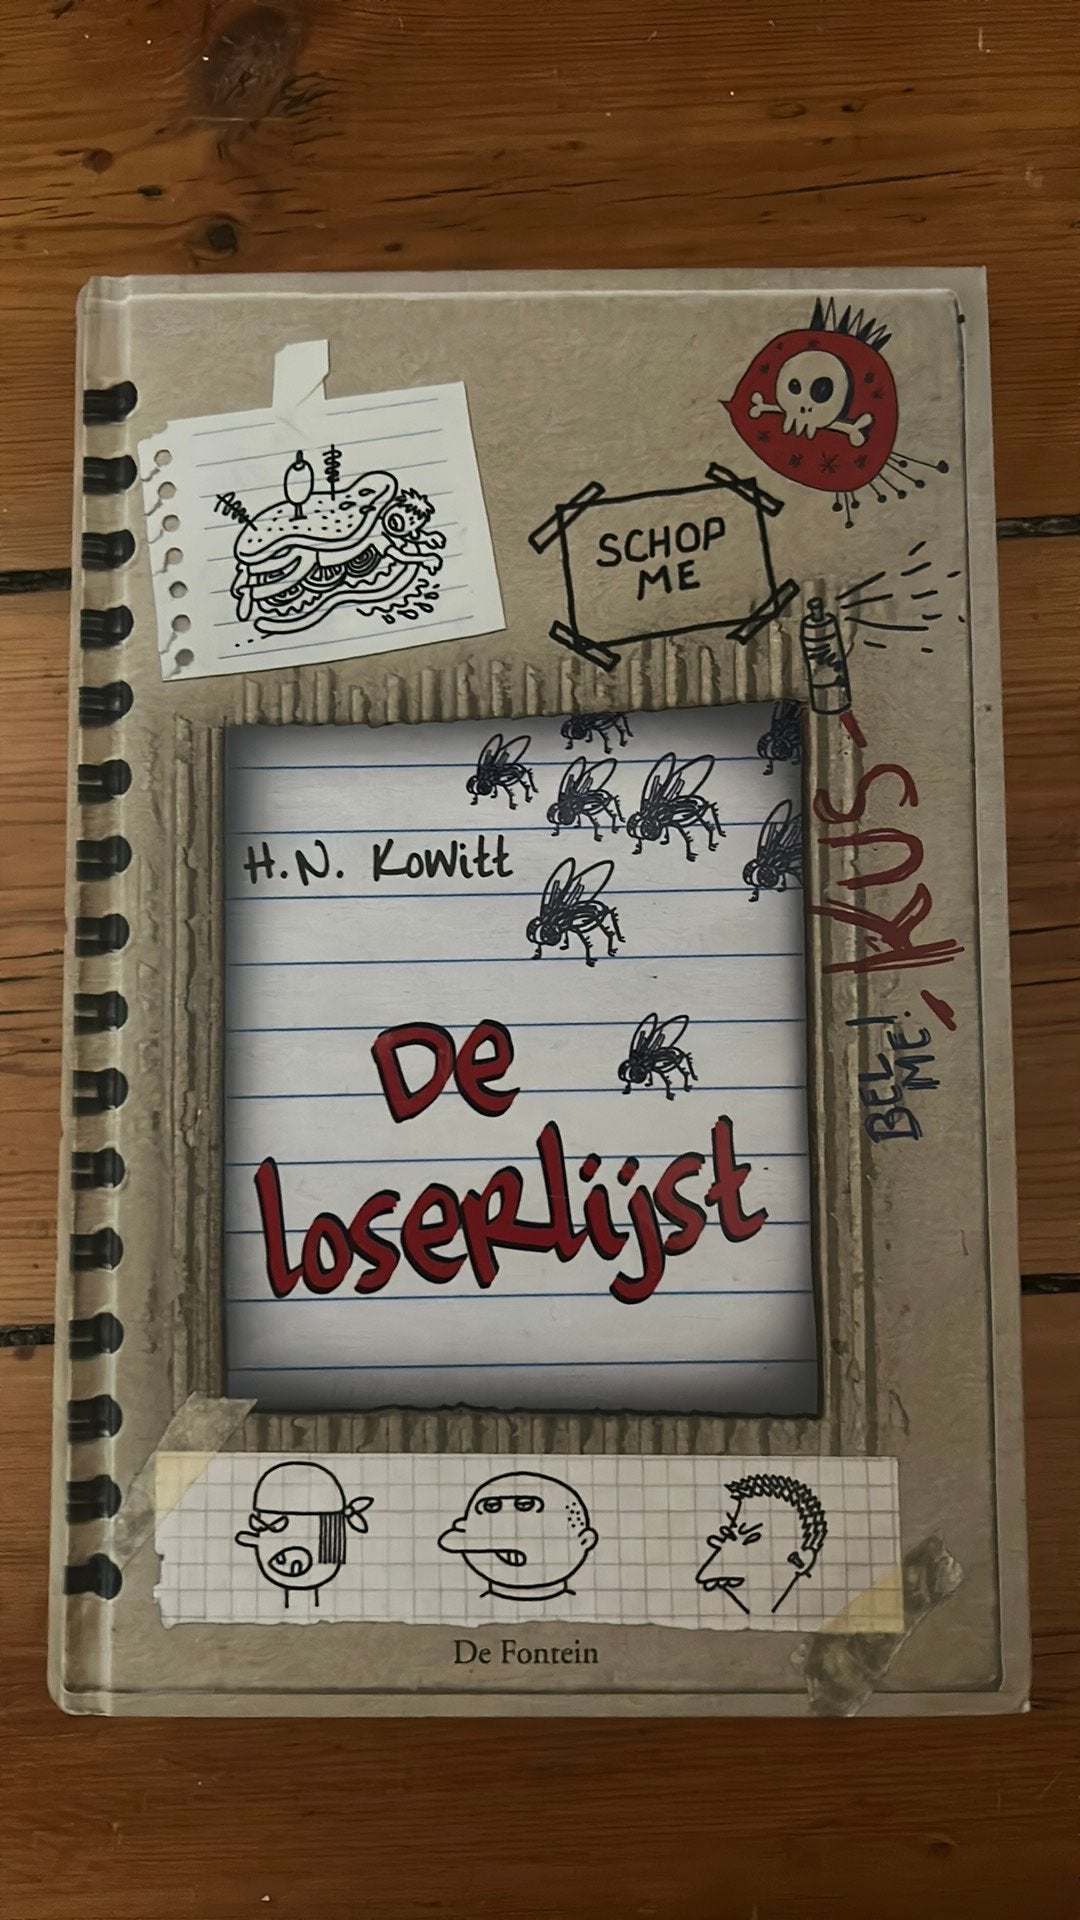 SCHOP
ME
H.N. Kowitt
De
loserlijst
KUS
BEL
ME!
De Fontein